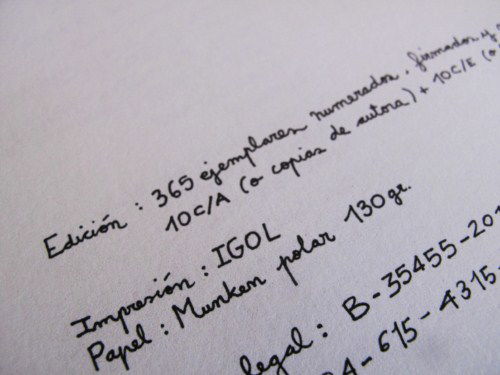 Edición : 365 ejemplares numerados, firmados y
10C/A (o copias de autora) + 10C/E (o
Impresión : IGOL
Papel : Munken polar 130gr.
legal : B-35455-201
-615-4315-